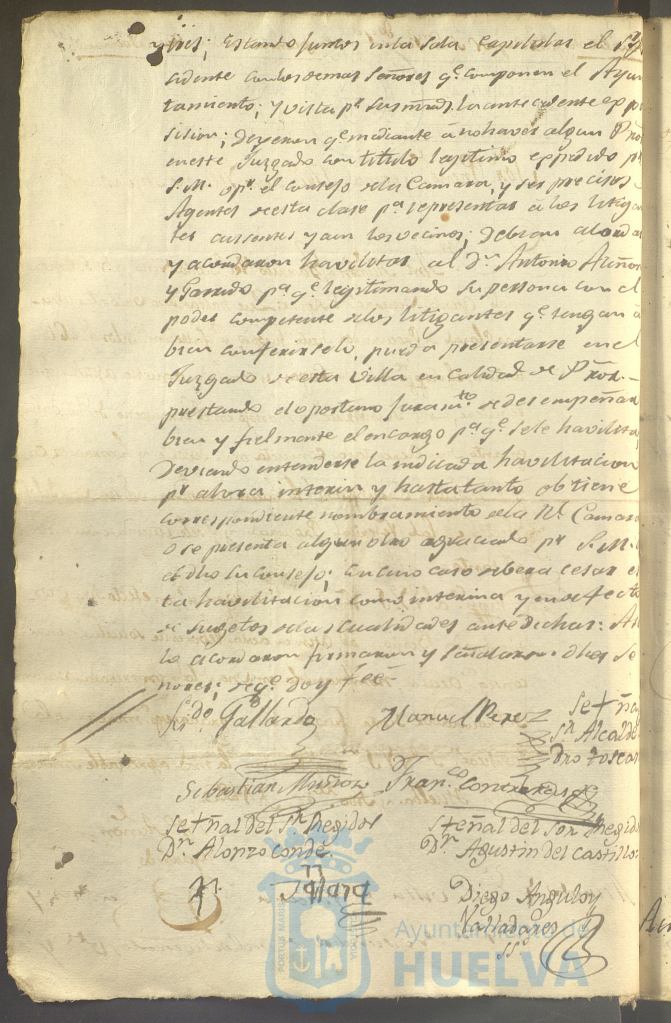 y tres; estando juntos en la sala capitular el Sr
cidente con los demas Señores qe. componen el Ayun
tamiento; y vista pr. sus mrds. la antecedente expo
sision; dixeron qe. mediante á no haver algun Pror.
en este Juzgado con titulo legitimo expedido pr.
S. M. o pr. el consejo de la Camara, y ser precisos
Agentes de esta clase pa. representar á los litigan
tes ausentes y aun los vecinos; debian acordar
y acordaron havilitar al Dn. Antonio
y Garrido pa. qe. legitimando su persona con el
poder competente de los litigantes qe. tengan á
bien conferirselo, pueda presentarse en el
Juzgado de esta Villa en calidad de Pror.
prestando el oportuno juramto. de desempeñar
bien y fielmente el encargo pa. qe. se le havilita,
deviendo entenderse la indicada havilitacion
pr. ahora interin y hasta tanto obtiene
correspondiente nombramiento de la Rl. Camara
o se presenta algun otro agraciado pr. S. M.
el dho su consejo; en cuio caso debera cesar es
ta havilitacion como interina y en defecto
de sugetos de las cualidades antedichas: Asi
lo acordaron firmaron y señalaron dhos Se
ñores; de qe. doy fee =
Gallardo Manuel Perez Señal
Sr. Alcalde
Dro Toscan
Sebastian Muñoz Franco. Contreras
Señal del Sr. Regidor Señal del Sor. Regidor
Dn. Alonzo Conde. Dn. Agustin del Castillo
Diego Anguloy
Valladares
SSo.
PORTUS MARIS
Ayuntamiento de
HUELVA